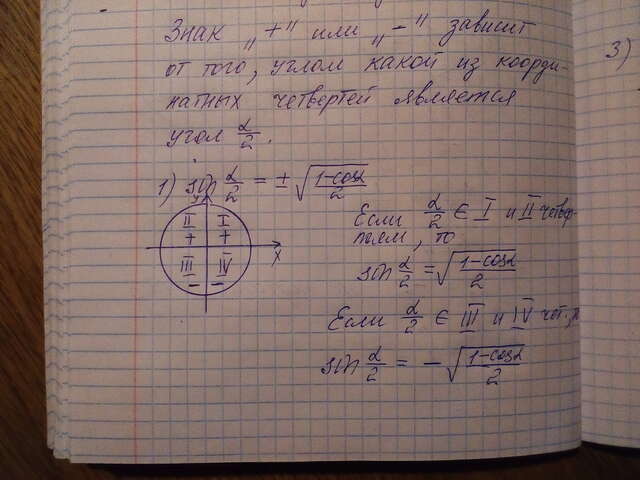 Знак „+" или „−" зависит
от того, углом какой из коорди-
натных четвертей является
угол α/2.
1) sin α/2 = ± √((1-cosα)/2)
y
II I
+ +
x
III IV
− −
Если α/2 ∈ I и II четвер-
тям, то
sin α/2 = √((1-cosα)/2)
Если α/2 ∈ III и IV чет.,
sin α/2 = − √((1-cosα)/2)
3)